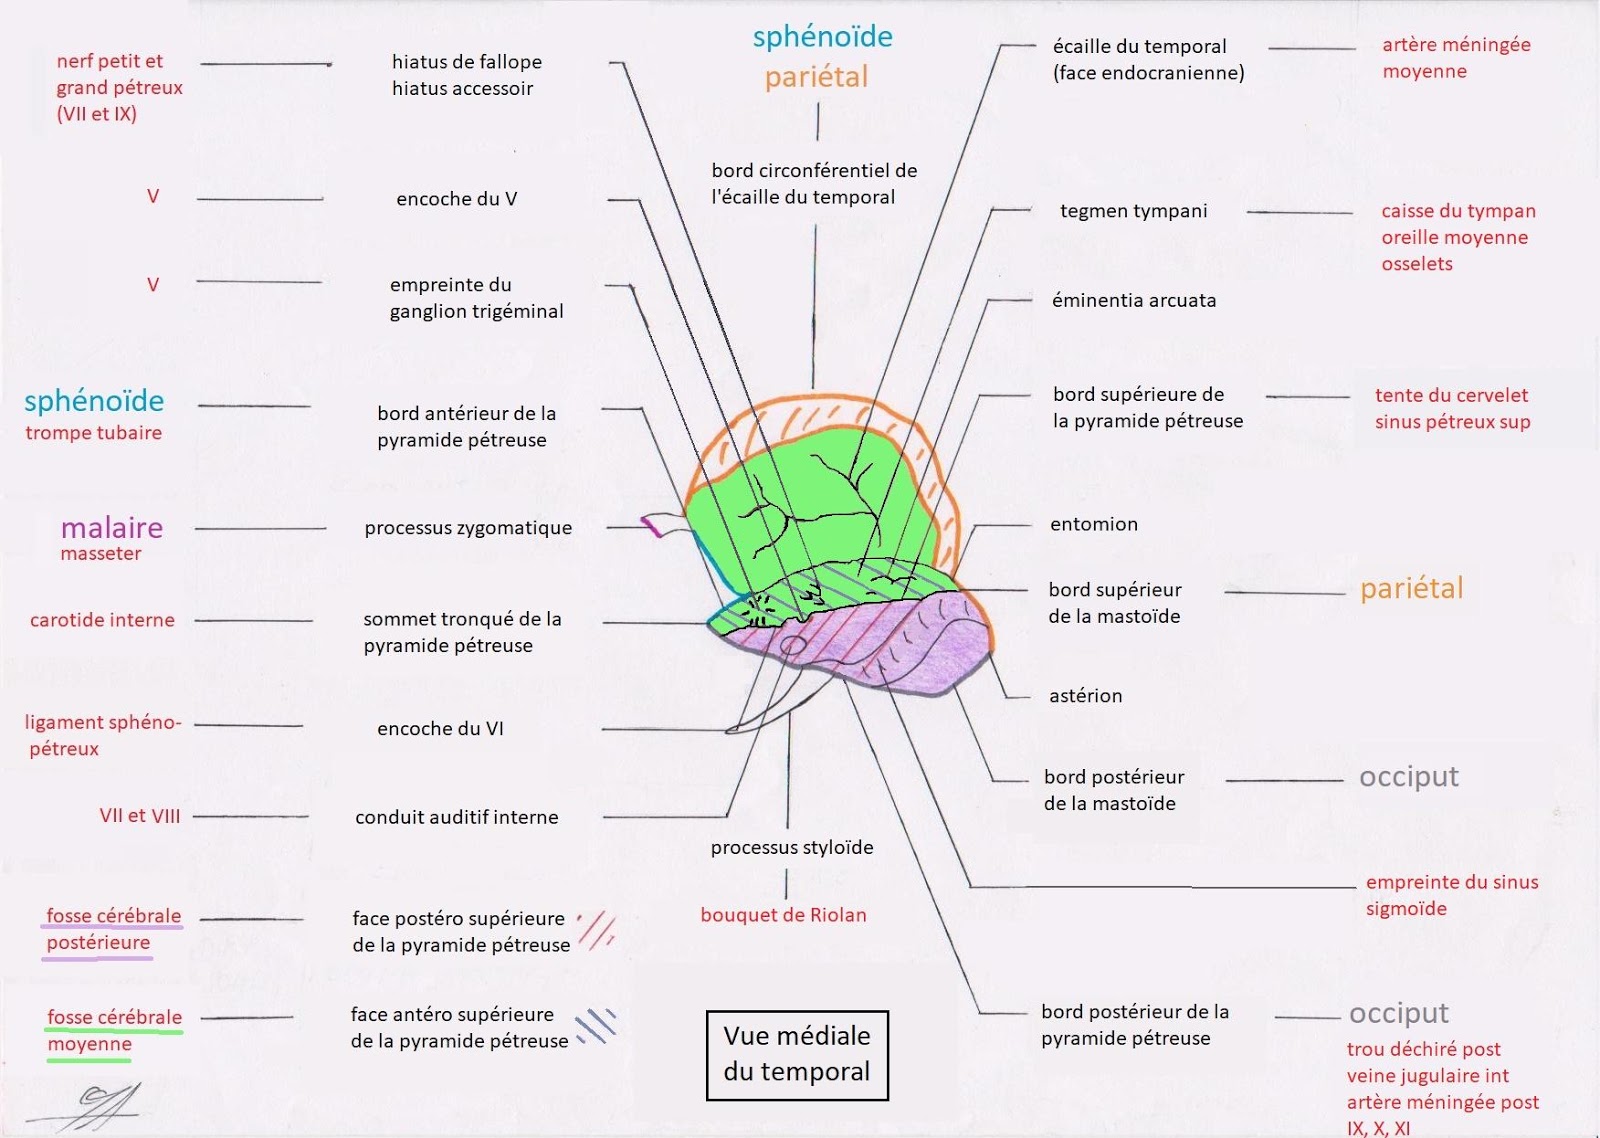 sphénoïde
pariétal
bord circonférentiel de
l'écaille du temporal
nerf petit et
grand pétreux
(VII et IX)
hiatus de fallope
hiatus accessoir
V
encoche du V
V
empreinte du
ganglion trigéminal
sphénoïde
trompe tubaire
bord antérieur de la
pyramide pétreuse
malaire
masseter
processus zygomatique
carotide interne
sommet tronqué de la
pyramide pétreuse
ligament sphéno-
pétreux
encoche du VI
VII et VIII
conduit auditif interne
fosse cérébrale
postérieure
face postéro supérieure
de la pyramide pétreuse
fosse cérébrale
moyenne
face antéro supérieure
de la pyramide pétreuse
processus styloïde
bouquet de Riolan
Vue médiale
du temporal
écaille du temporal
(face endocranienne)
artère méningée
moyenne
tegmen tympani
caisse du tympan
oreille moyenne
osselets
éminentia arcuata
bord supérieure de
la pyramide pétreuse
tente du cervelet
sinus pétreux sup
entomion
bord supérieur
de la mastoïde
pariétal
astérion
bord postérieur
de la mastoïde
occiput
empreinte du sinus
sigmoïde
bord postérieur de la
pyramide pétreuse
occiput
trou déchiré post
veine jugulaire int
artère méningée post
IX, X, XI